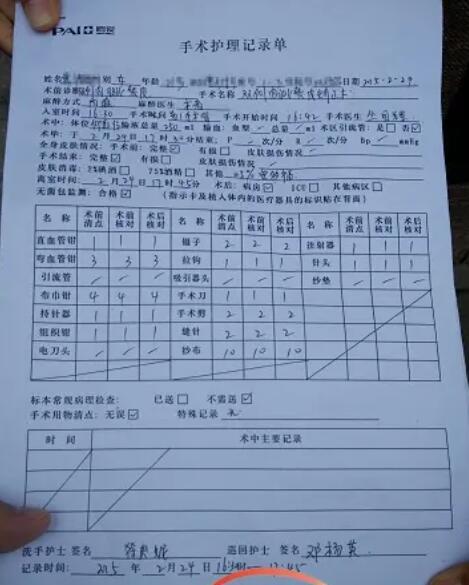 PAI
手术护理记录单
姓名 别 女 年龄 日期 2015-2-29
术前诊断 手术名称
麻醉方式 麻醉医生
入室时间 16:30 手术时间 手术开始时间 16:42 手术医生
术中：体位 输液总量 250 ml 输血：血型 / 总量 / ml 术区引流管：是□ 否☑
术毕：于 2 月 24 日 17 时 结束：P / 次/分 R / 次/分 Bp / mmHg
全身皮肤情况：手术前：完整☑ 有损□ 皮肤损伤情况 /
手术结束：完整☑ 有损□ 皮肤损伤情况 /
皮肤消毒：2%碘酒□ 75%酒精□ 其他
离室时间 2 月 24 日 17 时 45 分 术后：病房☑ ICU□ 其他病区□
无菌包监测：合格☑ (指示卡及植入体内的医疗器具的标识贴在背面)
名 称 术前清点 术前核对 术后核对 名 称 术前清点 术前核对 术后核对 名 称 术前清点 术中核对 术后核对
直血管钳 1 1 1 镊子 2 2 2 注射器 1 1 1
弯血管钳 3 3 3 拉钩 1 1 1 针头 1 1 1
引流管 / / / 吸引器头 / / / 纱垫 / / /
布巾钳 4 4 4 手术刀 1 1 1
持针器 1 1 1 手术剪 2 2 2
组织钳 1 1 1 缝针 2 2 2
电刀头 / / / 纱布 10 10 10
标本常规病理检查： 已送□ 不需送☑
手术用物清点：无误☑ 特殊记录 无
时 间 术中主要记录
洗手护士 签名 巡回护士 签名 邓杨英
记录时间： 2015 年 2 月 24 日 17:45